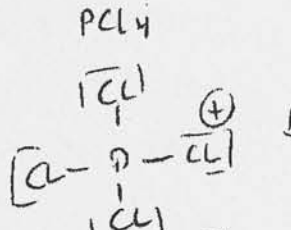 PCl4
Cl
+
Cl - P - Cl
Cl